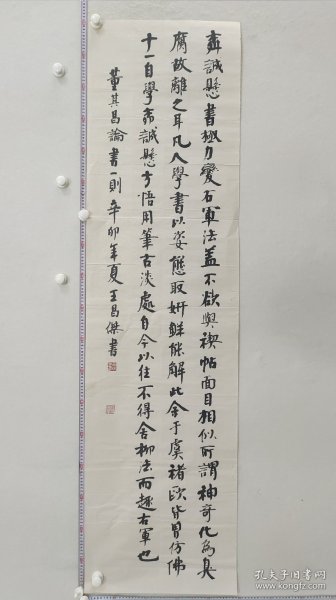 柳誠懸書極力變右軍法蓋不欲與禊帖面目相似所謂神奇化為臭
腐故離之耳凡人學書以姿態取妍鮮能解此余于虞褚歐皆曾仿佛
十一自學柳誠懸方悟用筆古淡處自今以往不得舍柳法而趨右軍也
董其昌論書一則辛卯年夏王昌傑書
孔夫子旧书网